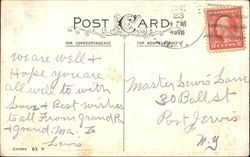 POST CARD
FOR CORRESPONDENCE
FOR ADDRESS ONLY
We are well &
Hope you are
all well to with
Love & Best wishes
to all From Grand Pa
& grand Ma To
Lewis
Master Lewis
30 Ball. St
Port Jervis
N.Y
SERIES 61 B